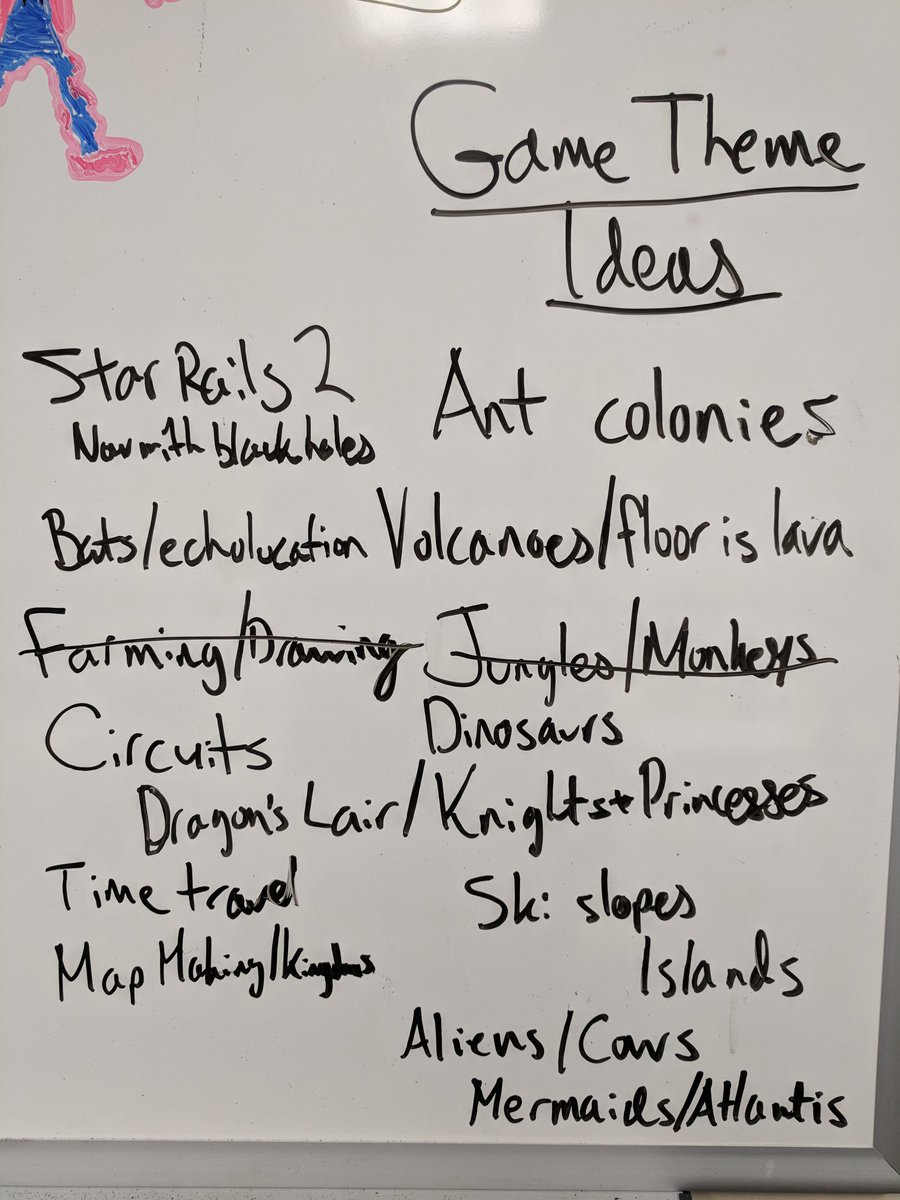 Game Theme
Ideas
Star Rails 2
Now with black holes
Ant colonies
Bats/echolocation
Volcanoes/floor is lava
Farming/Drawing
Jungles/Monkeys
Circuits
Dinosaurs
Dragon's Lair/Knights + Princesses
Time travel
Ski slopes
Map Making/Kingdoms
Islands
Aliens/Cows
Mermaids/Atlantis